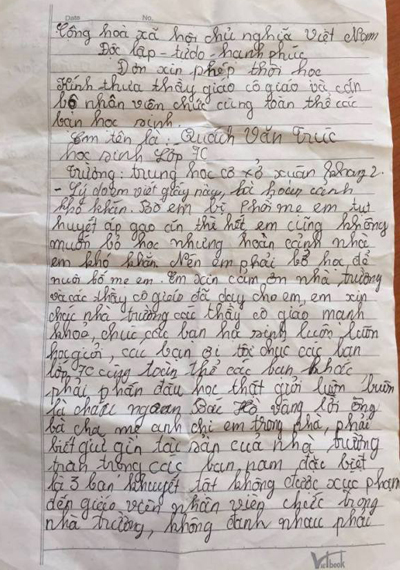 Date No.
Cộng hoà xã hội chủ nghĩa Việt Nam
Độc lập - tự do - hạnh phúc
Đơn xin phép thôi học
Kính thưa thầy giáo cô giáo và cán
bộ nhân viên chức cùng toàn thể các
bạn học sinh
Em tên là: Quách Văn Trúc
học sinh Lớp 7C
Trường: trung học cơ xở xuân phang 2.
- Lí do em viết giấy này, là hoàn cảnh
khó khăn. Bố em bị Phổi mẹ em tụt
huyết áp gạo ăn thì hết em cũng không
muốn bỏ học nhưng hoàn cảnh nhà
em khó khăn. Nên em phải bỏ học để
nuôi bố mẹ em. Em xin cảm ơn nhà trường
và các thầy cô giáo đã dạy cho em, em xin
chúc nhà trường các thầy cô giáo mạnh
khoẻ, chúc các bạn học sinh luôn luôn
học giỏi, các bạn ơi tớ chúc các bạn
lớp 7C cùng toàn thể các bạn khác
phải phấn đấu học thật giỏi luôn luôn
là cháu ngoan Bác Hồ vâng lời ông
bà cha mẹ anh chị em trong nhà, phải
biết giữ gìn tài sản của nhà trường
trân trọng các bạn nam, đặc biệt
là 3 bạn khuyết tật không được xúc phạm
đến giáo viên nhân viên chức trong
nhà trường, không đánh nhau phải
Vietbook